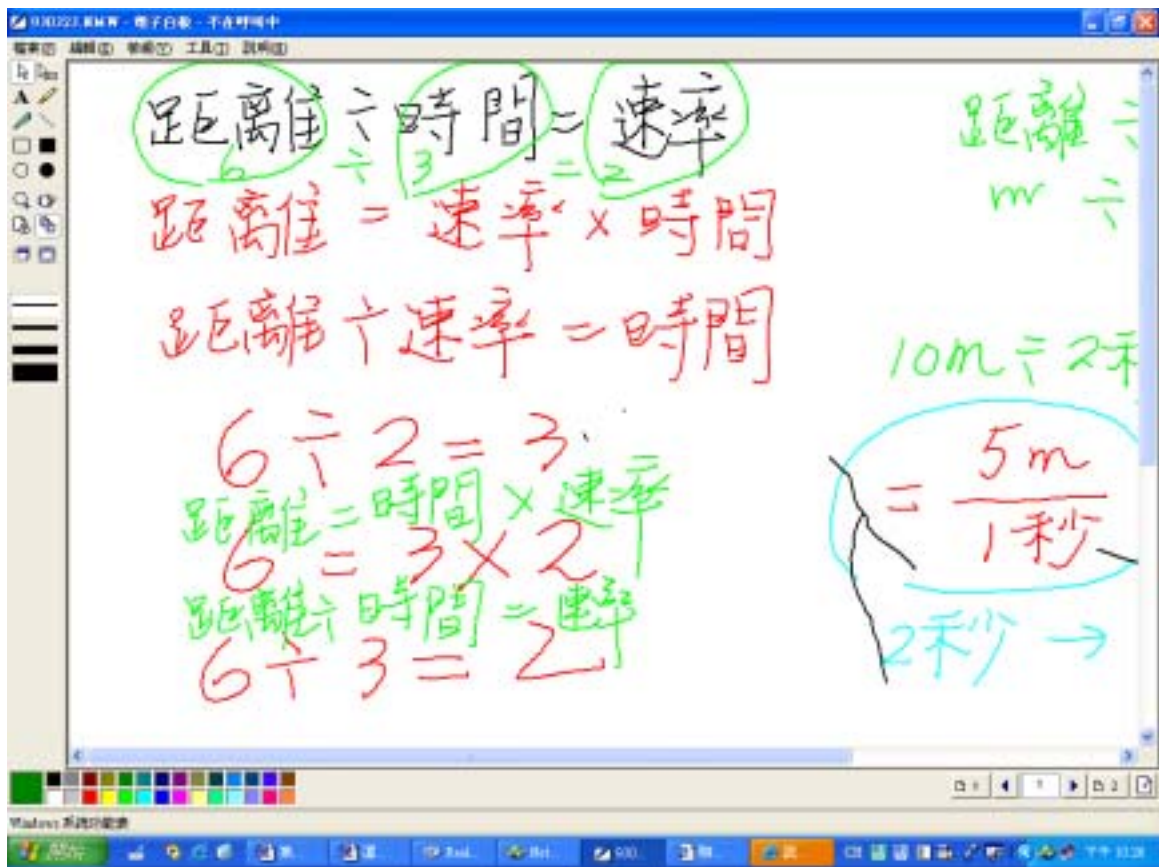 930223.NMW - 電子白板 - 不在呼叫中
檔案(F) 編輯(E) 檢視(V) 工具(T) 說明(H)
距離÷時間=速率
6 ÷ 3 = 2
距離=速率×時間
距離÷速率=時間
6÷2=3
距離=時間×速率
6=3×2
距離÷時間=速率
6÷3=2
距離÷
m ÷
10m÷2秒
= 5m
1秒
2秒→
Windows 系統功能表
開始
930...